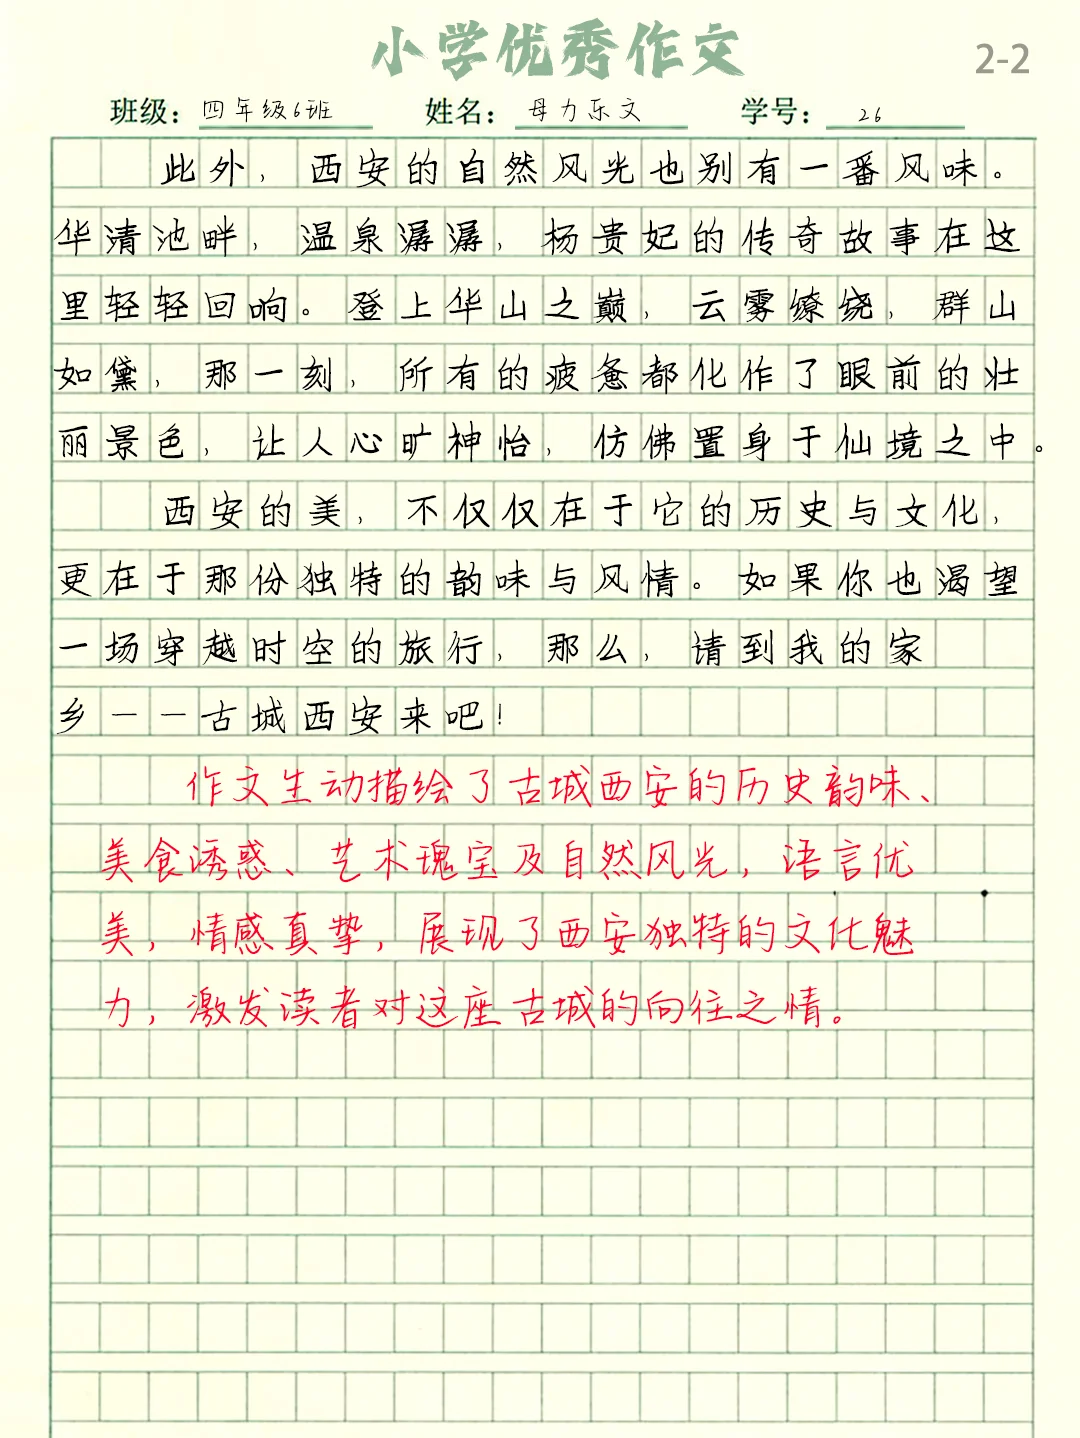 小学优秀作文
2-2
班级：四年级6班 姓名：母力乐文 学号：26
此外，西安的自然风光也别有一番风味。
华清池畔，温泉潺潺，杨贵妃的传奇故事在这
里轻轻回响。登上华山之巅，云雾缭绕，群山
如黛，那一刻，所有的疲惫都化作了眼前的壮
丽景色，让人心旷神怡，仿佛置身于仙境之中。
西安的美，不仅仅在于它的历史与文化，
更在于那份独特的韵味与风情。如果你也渴望
一场穿越时空的旅行，那么，请到我的家
乡——古城西安来吧！
作文生动描绘了古城西安的历史韵味、
美食诱惑、艺术瑰宝及自然风光，语言优
美，情感真挚，展现了西安独特的文化魅
力，激发读者对这座古城的向往之情。